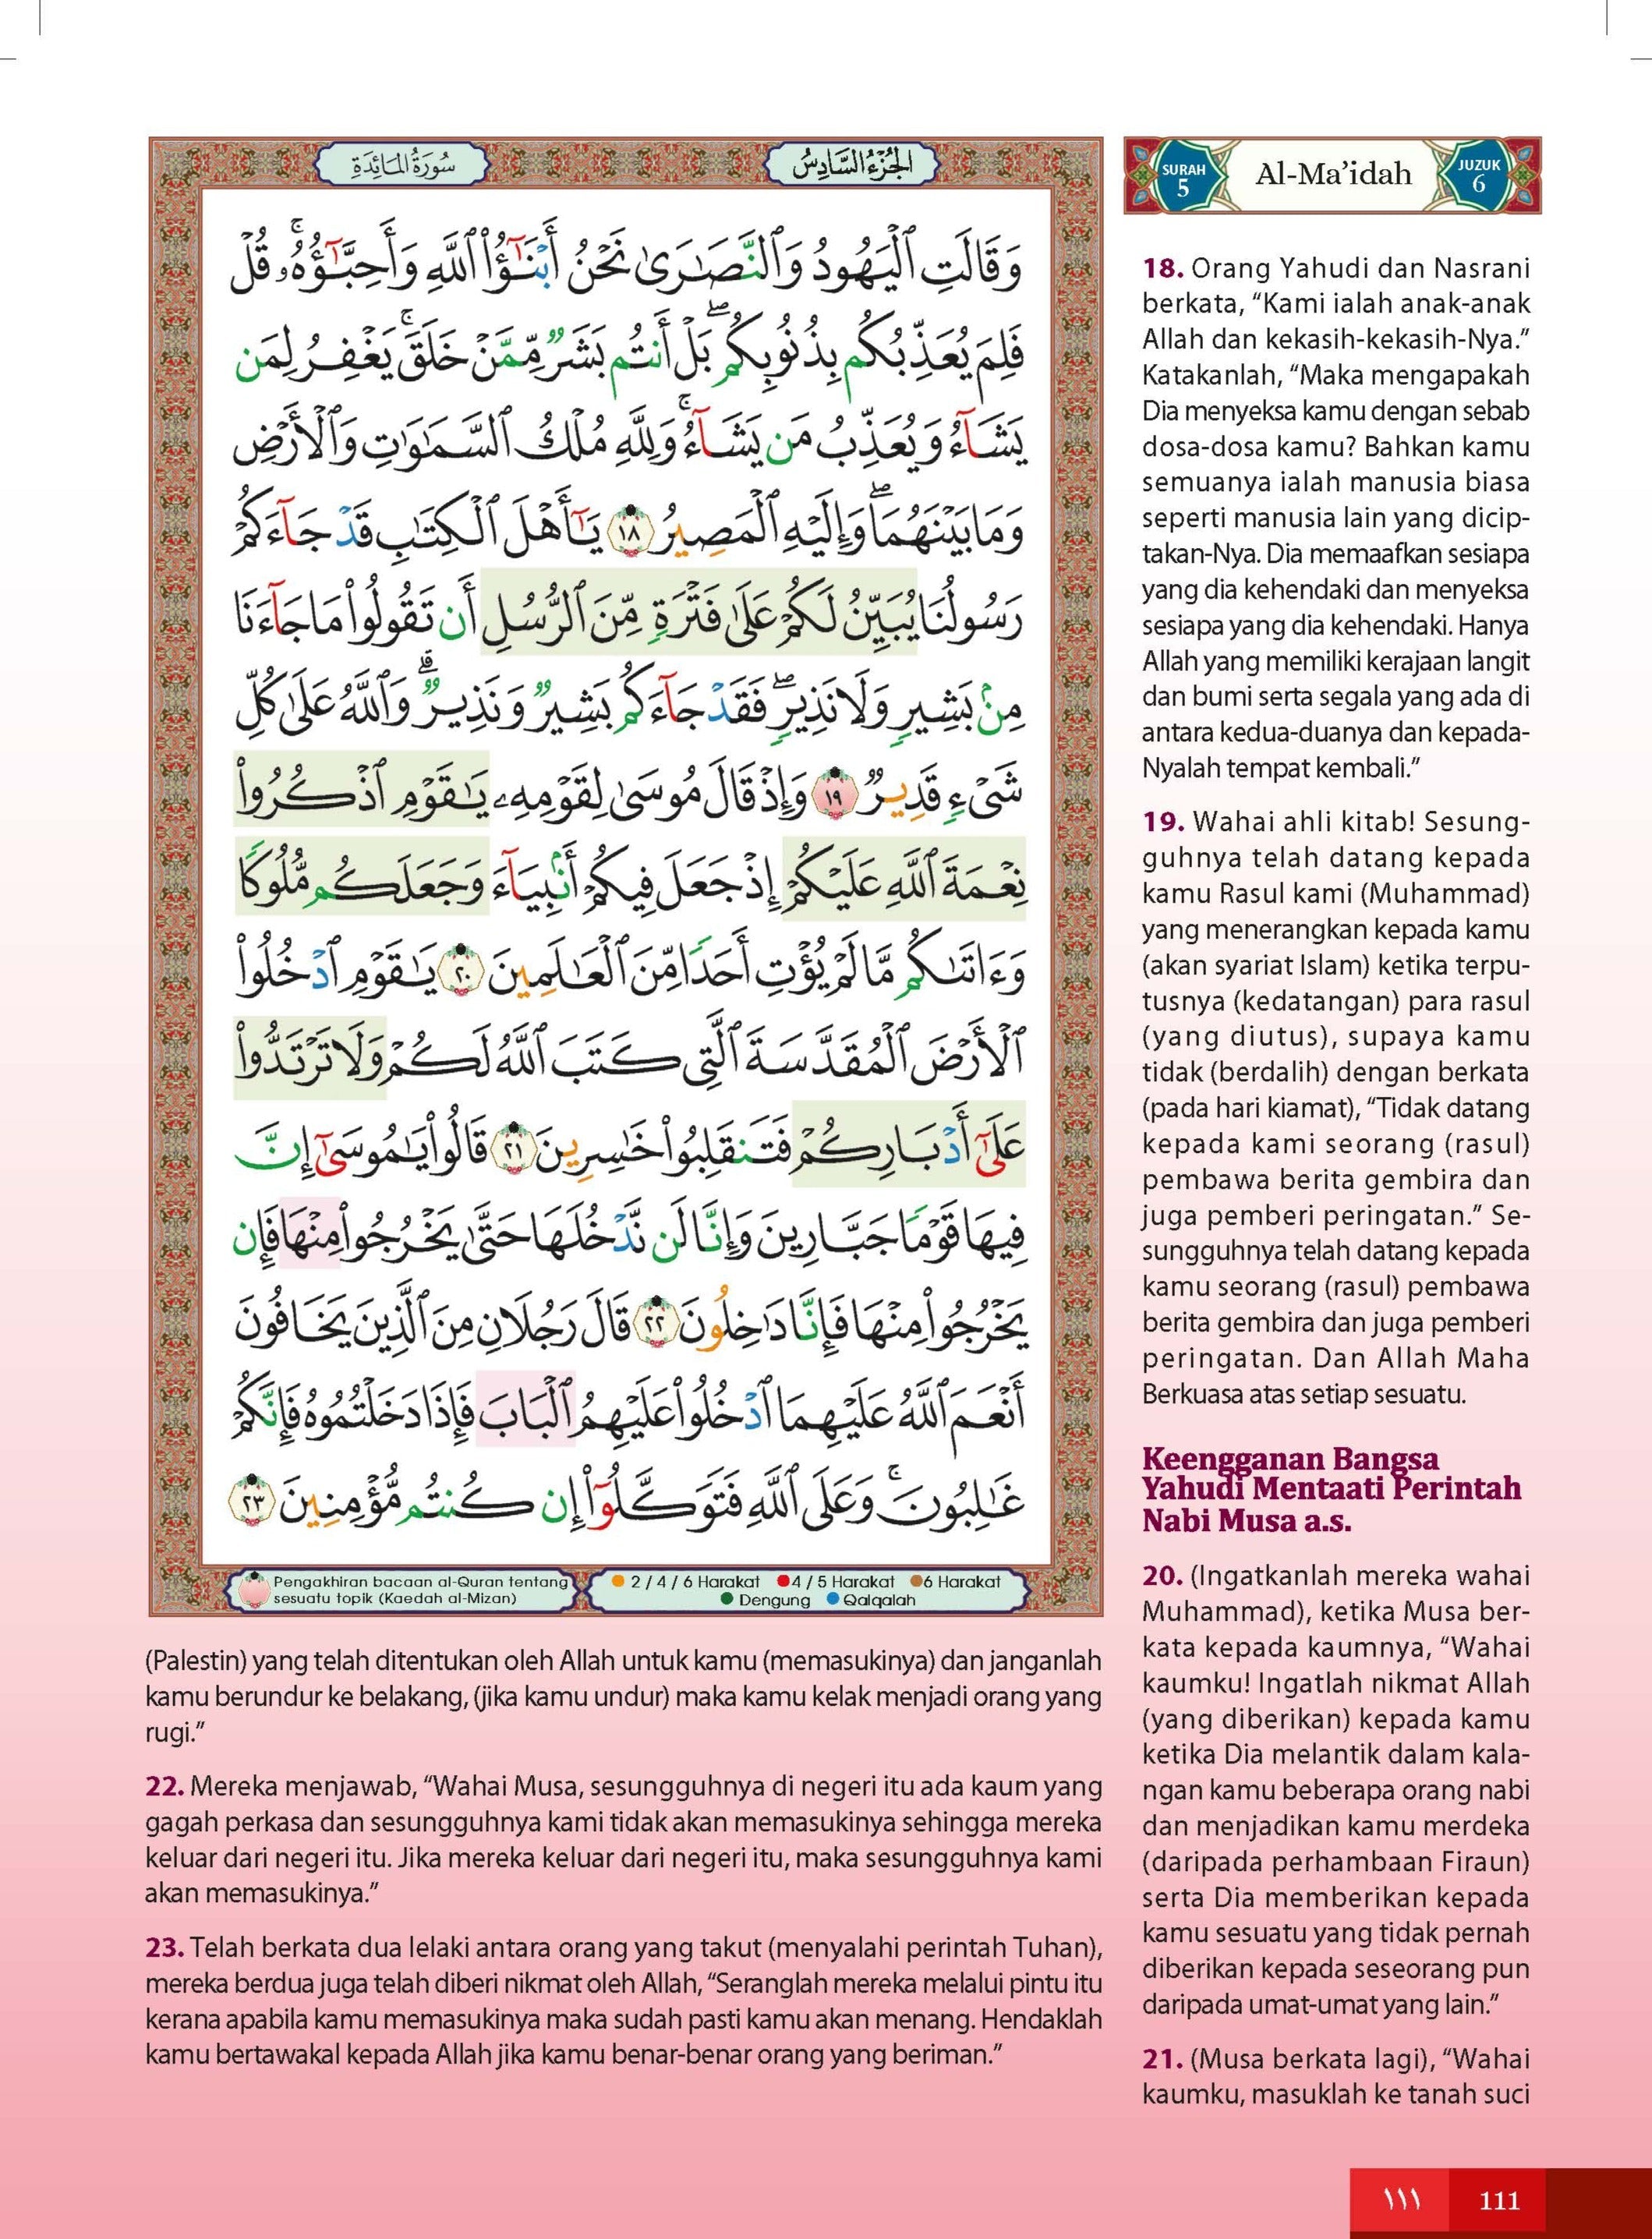 سُورَةُ المَائِدَةِ
الجُزْءُ السَّادِسُ
وَقَالَتِ ٱلْيَهُودُ وَٱلنَّصَٰرَىٰ نَحْنُ أَبْنَٰٓؤُا۟ ٱللَّهِ وَأَحِبَّٰٓؤُهُۥ ۚ قُلْ
فَلِمَ يُعَذِّبُكُم بِذُنُوبِكُم ۖ بَلْ أَنتُم بَشَرٌ مِّمَّنْ خَلَقَ ۚ يَغْفِرُ لِمَن
يَشَآءُ وَيُعَذِّبُ مَن يَشَآءُ ۚ وَلِلَّهِ مُلْكُ ٱلسَّمَٰوَٰتِ وَٱلْأَرْضِ
وَمَا بَيْنَهُمَا ۖ وَإِلَيْهِ ٱلْمَصِيرُ ١٨ يَٰٓأَهْلَ ٱلْكِتَٰبِ قَدْ جَآءَكُمْ
رَسُولُنَا يُبَيِّنُ لَكُمْ عَلَىٰ فَتْرَةٍ مِّنَ ٱلرُّسُلِ أَن تَقُولُوا۟ مَا جَآءَنَا
مِنۢ بَشِيرٍ وَلَا نَذِيرٍ ۖ فَقَدْ جَآءَكُم بَشِيرٌ وَنَذِيرٌ ۗ وَٱللَّهُ عَلَىٰ كُلِّ
شَىْءٍ قَدِيرٌ ١٩ وَإِذْ قَالَ مُوسَىٰ لِقَوْمِهِۦ يَٰقَوْمِ ٱذْكُرُوا۟
نِعْمَةَ ٱللَّهِ عَلَيْكُمْ إِذْ جَعَلَ فِيكُمْ أَنۢبِيَآءَ وَجَعَلَكُم مُّلُوكًا
وَءَاتَىٰكُم مَّا لَمْ يُؤْتِ أَحَدًا مِّنَ ٱلْعَٰلَمِينَ ٢٠ يَٰقَوْمِ ٱدْخُلُوا۟
ٱلْأَرْضَ ٱلْمُقَدَّسَةَ ٱلَّتِى كَتَبَ ٱللَّهُ لَكُمْ وَلَا تَرْتَدُّوا۟
عَلَىٰٓ أَدْبَارِكُمْ فَتَنقَلِبُوا۟ خَٰسِرِينَ ٢١ قَالُوا۟ يَٰمُوسَىٰٓ إِنَّ
فِيهَا قَوْمًا جَبَّارِينَ وَإِنَّا لَن نَّدْخُلَهَا حَتَّىٰ يَخْرُجُوا۟ مِنْهَا فَإِن
يَخْرُجُوا۟ مِنْهَا فَإِنَّا دَٰخِلُونَ ٢٢ قَالَ رَجُلَانِ مِنَ ٱلَّذِينَ يَخَافُونَ
أَنْعَمَ ٱللَّهُ عَلَيْهِمَا ٱدْخُلُوا۟ عَلَيْهِمُ ٱلْبَابَ فَإِذَا دَخَلْتُمُوهُ فَإِنَّكُمْ
غَٰلِبُونَ ۚ وَعَلَى ٱللَّهِ فَتَوَكَّلُوٓا۟ إِن كُنتُم مُّؤْمِنِينَ ٢٣
Pengakhiran bacaan al-Quran tentang
sesuatu topik (Kaedah al-Mizan)
2 / 4 / 6 Harakat 4 / 5 Harakat 6 Harakat
Dengung Qalqalah
SURAH
5
Al-Ma’idah
JUZUK
6
18. Orang Yahudi dan Nasrani
berkata, “Kami ialah anak-anak
Allah dan kekasih-kekasih-Nya.”
Katakanlah, “Maka mengapakah
Dia menyeksa kamu dengan sebab
dosa-dosa kamu? Bahkan kamu
semuanya ialah manusia biasa
seperti manusia lain yang dicip-
takan-Nya. Dia memaafkan sesiapa
yang dia kehendaki dan menyeksa
sesiapa yang dia kehendaki. Hanya
Allah yang memiliki kerajaan langit
dan bumi serta segala yang ada di
antara kedua-duanya dan kepada-
Nyalah tempat kembali.”
19. Wahai ahli kitab! Sesung-
guhnya telah datang kepada
kamu Rasul kami (Muhammad)
yang menerangkan kepada kamu
(akan syariat Islam) ketika terpu-
tusnya (kedatangan) para rasul
(yang diutus), supaya kamu
tidak (berdalih) dengan berkata
(pada hari kiamat), “Tidak datang
kepada kami seorang (rasul)
pembawa berita gembira dan
juga pemberi peringatan.” Se-
sungguhnya telah datang kepada
kamu seorang (rasul) pembawa
berita gembira dan juga pemberi
peringatan. Dan Allah Maha
Berkuasa atas setiap sesuatu.
Keengganan Bangsa
Yahudi Mentaati Perintah
Nabi Musa a.s.
20. (Ingatkanlah mereka wahai
Muhammad), ketika Musa ber-
kata kepada kaumnya, “Wahai
kaumku! Ingatlah nikmat Allah
(yang diberikan) kepada kamu
ketika Dia melantik dalam kala-
ngan kamu beberapa orang nabi
dan menjadikan kamu merdeka
(daripada perhambaan Firaun)
serta Dia memberikan kepada
kamu sesuatu yang tidak pernah
diberikan kepada seseorang pun
daripada umat-umat yang lain.”
21. (Musa berkata lagi), “Wahai
kaumku, masuklah ke tanah suci
(Palestin) yang telah ditentukan oleh Allah untuk kamu (memasukinya) dan janganlah
kamu berundur ke belakang, (jika kamu undur) maka kamu kelak menjadi orang yang
rugi.”
22. Mereka menjawab, “Wahai Musa, sesungguhnya di negeri itu ada kaum yang
gagah perkasa dan sesungguhnya kami tidak akan memasukinya sehingga mereka
keluar dari negeri itu. Jika mereka keluar dari negeri itu, maka sesungguhnya kami
akan memasukinya.”
23. Telah berkata dua lelaki antara orang yang takut (menyalahi perintah Tuhan),
mereka berdua juga telah diberi nikmat oleh Allah, “Seranglah mereka melalui pintu itu
kerana apabila kamu memasukinya maka sudah pasti kamu akan menang. Hendaklah
kamu bertawakal kepada Allah jika kamu benar-benar orang yang beriman.”
١١١
111